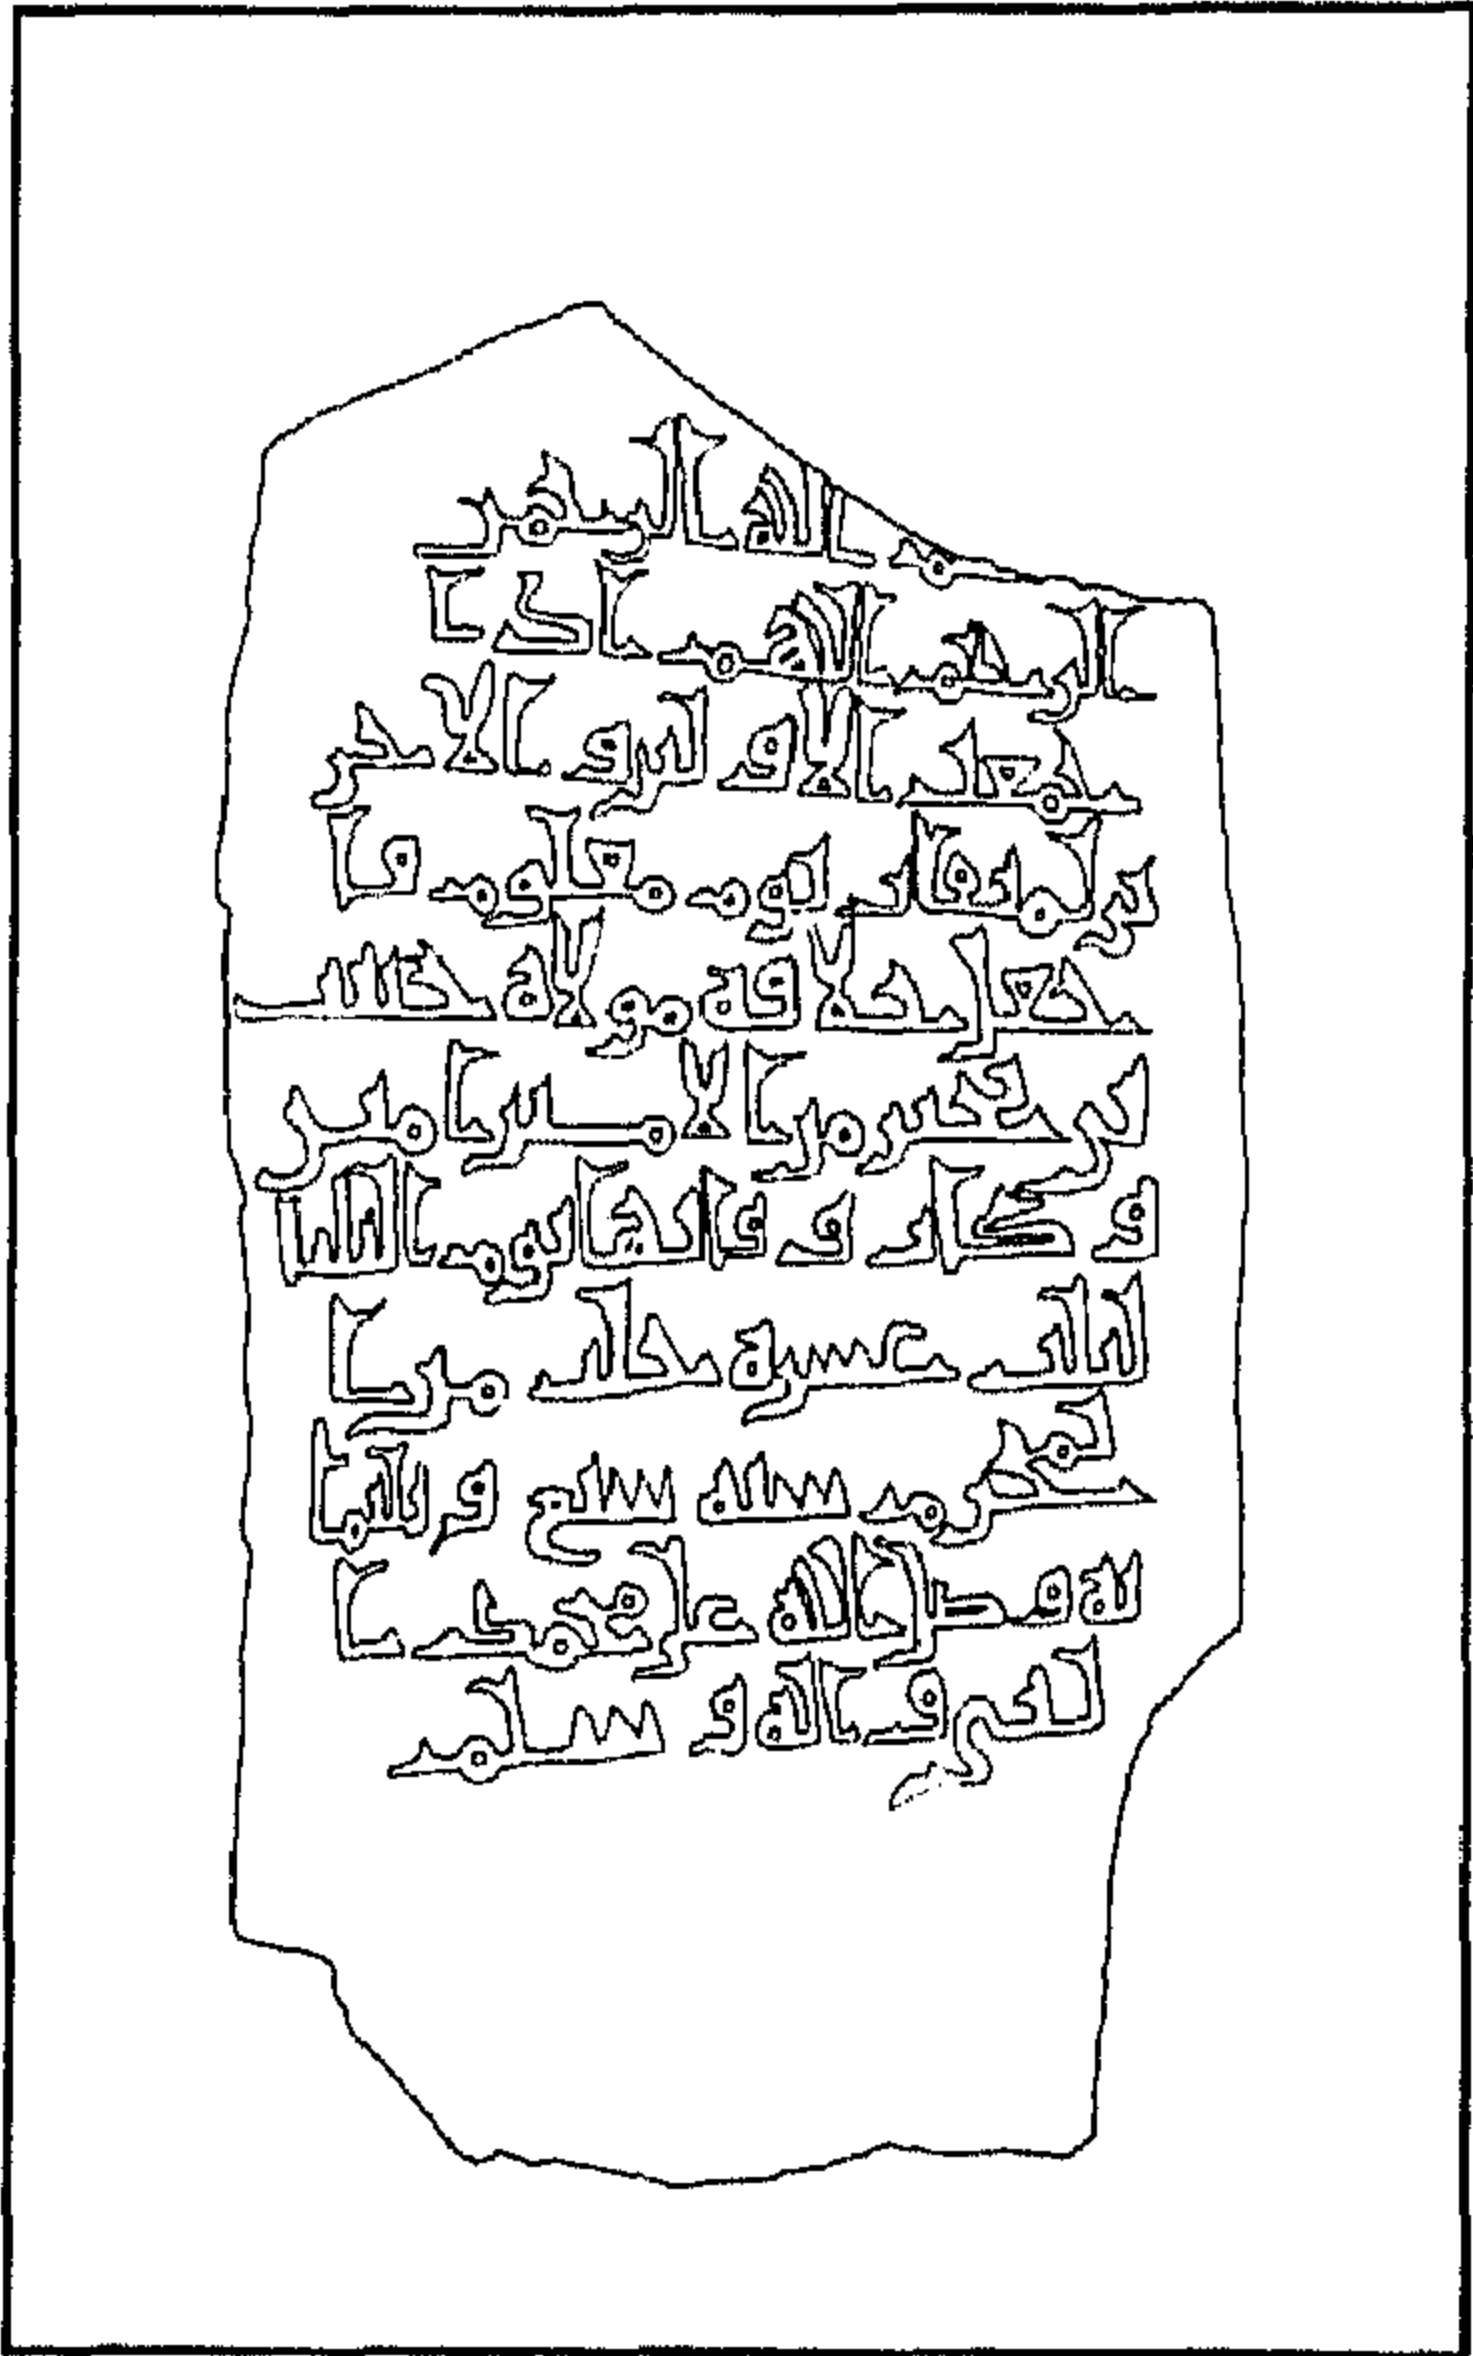 بسم الله الرحمن
الرحيم اللهم اذا
جمعت الاولين والاخر
ين لميقات يوم معلوم فا
جعل خلافة مولاة
من الامنين امين
و كان وفاتها يوم الثلثا
لثلث عشرة خلت من ا
لمحرم سنة سبع وثلثما
ية وصلى الله على محمد ا
لنبي و اله وسلم